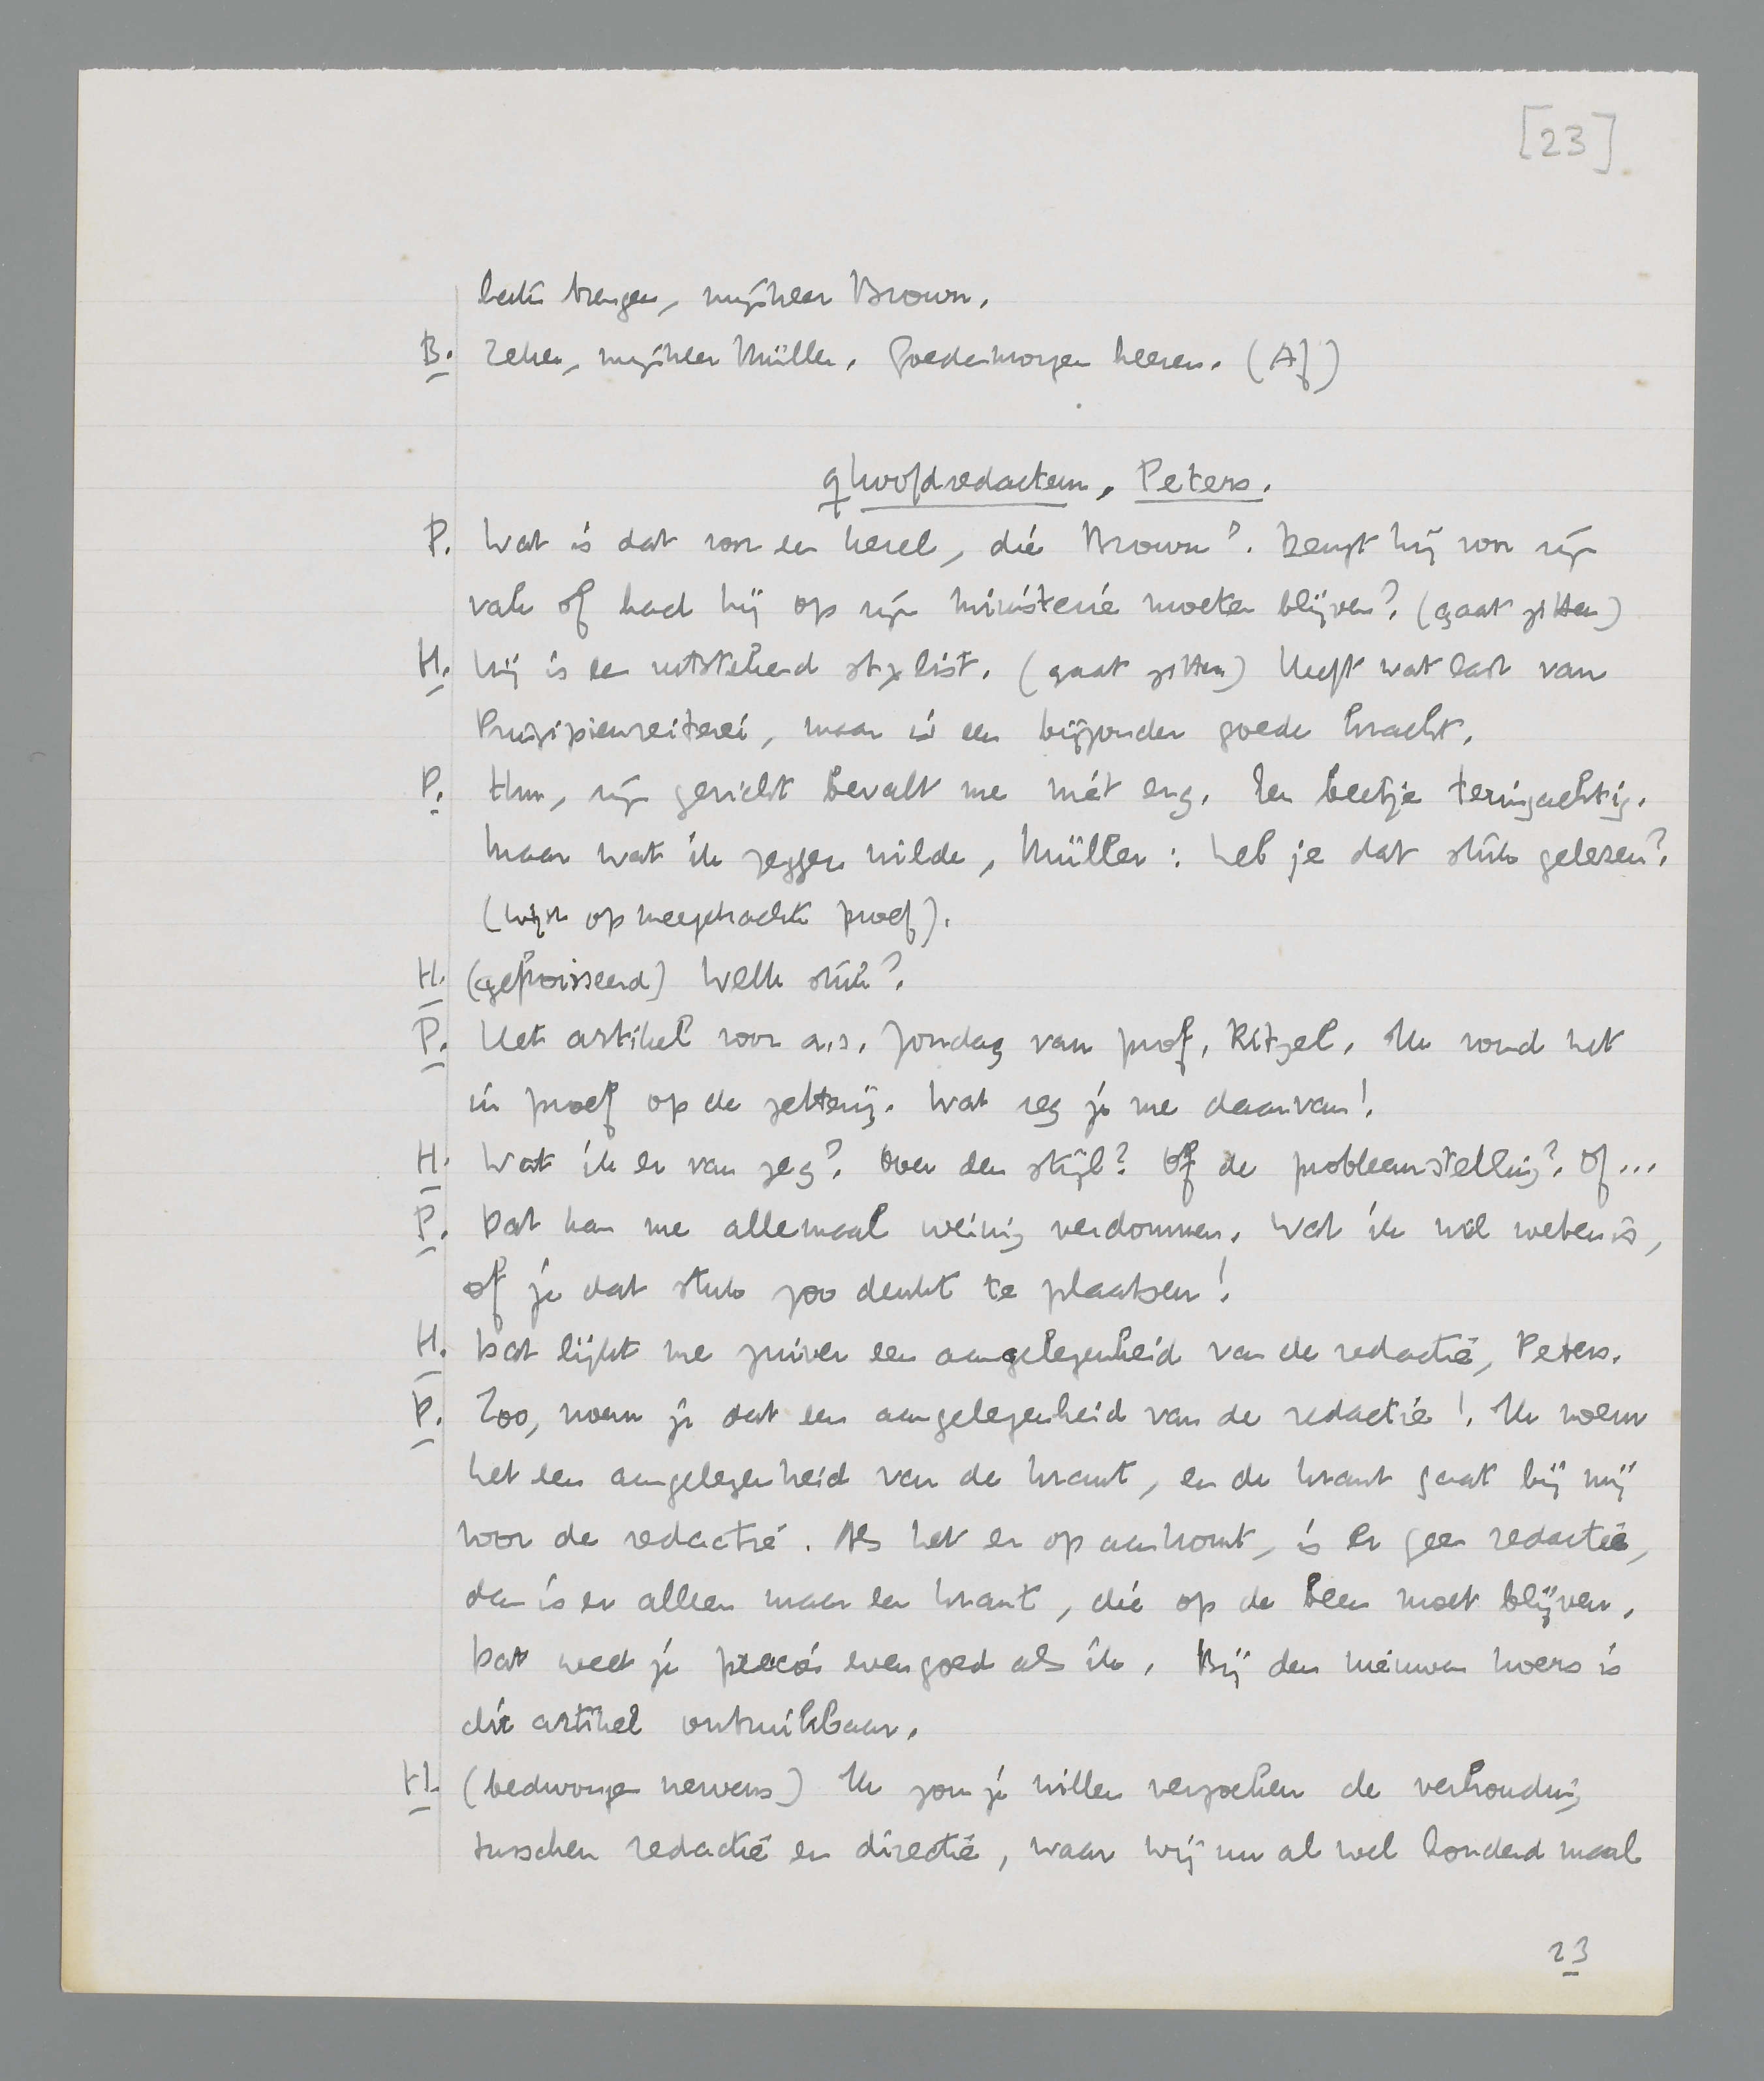 [23]
brengen, mijnheer Brown.
B. Zeker, mijnheer Müller. Goedenmorgen heeren. (Af)
9 hoofdredacteur, Peters.
P. Wat is dat voor een kerel, die Brown? Deugt hij voor zijn
vak of had hij op zijn ministerie moeten blijven? (gaat zitten)
H. Hij is een uitstekend stylist. (gaat zitten) Heeft wat last van
Prinzipienreiterei, maar is een bijzonder goede kracht.
P. Hm, zijn gezicht bevalt me niet erg. Een beetje teringachtig.
Maar wat ik zeggen wilde, Müller: heb je dat stuk gelezen?
(wijst op meegebrachte proef).
H. (gefroisseerd) Welk stuk?
P. Het artikel voor a.s. Zondag van prof. Ritzel. Ik vond het
in proef op de zetterij. Wat zeg je me daarvan!
H. Wat ik er van zeg? Over den stijl? Of de probleemstelling? Of ...
P. Dat kan me allemaal weinig verdommen. Wat ik wil weten is,
of je dat stuk zoo denkt te plaatsen!
H. Dat lijkt me zuiver een aangelegenheid van de redactie, Peters.
P. Zoo, noem je dat een aangelegenheid van de redactie! Ik noem
het een aangelegenheid van de krant, en de krant gaat bij mij
voor de redactie. Als het er op aankomt, is er geen redactie,
dan is er alleen maar een krant, die op de been moet blijven.
Dat weet je precies evengoed als ik. Bij den nieuwen koers is
dit artikel onbruikbaar.
H. (bedwongen nerveus) Ik zou je willen verzoeken de verhouding
tusschen redactie en directie, waar wij nu al wel honderd maal
23